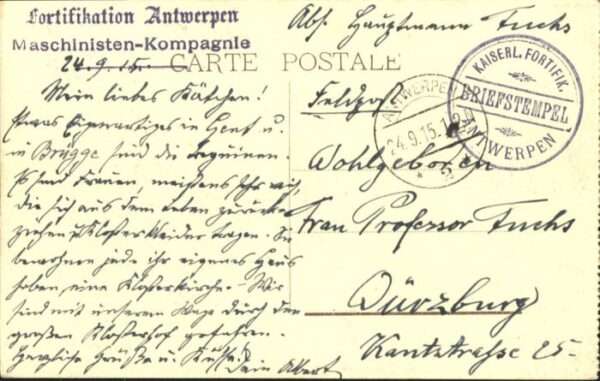 Fortifikation Antwerpen
Maschinisten-Kompagnie
24.9.15.
CARTE POSTALE
Mein liebes Kätchen!
Etwas Eigenartiges in Gent u.
in Brügge sind die Beguinen.
Es sind Frauen, meistens sehr
die sich aus dem Leben zurück-
ziehen u. Klosterkleider tragen. Sie
bewohnen jede ihr eigenes Haus
haben eine Klosterkirche. Wir
sind mit unserem Wege durch den
großen Klosterhof gefahren.
Herzliche Grüße u. Küsse
Dein Albert
Abs. Hauptmann Fuchs
Feldpost
ANTWERPEN
24.9.15.
KAISERL. FORTIFIK.
BRIEFSTEMPEL
ANTWERPEN
Wohlgeboren
Frau Professor Fuchs
Würzburg
Kantstrasse 25-